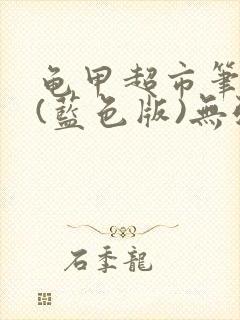 龟甲超市筆
(藍色版)無
石季龍